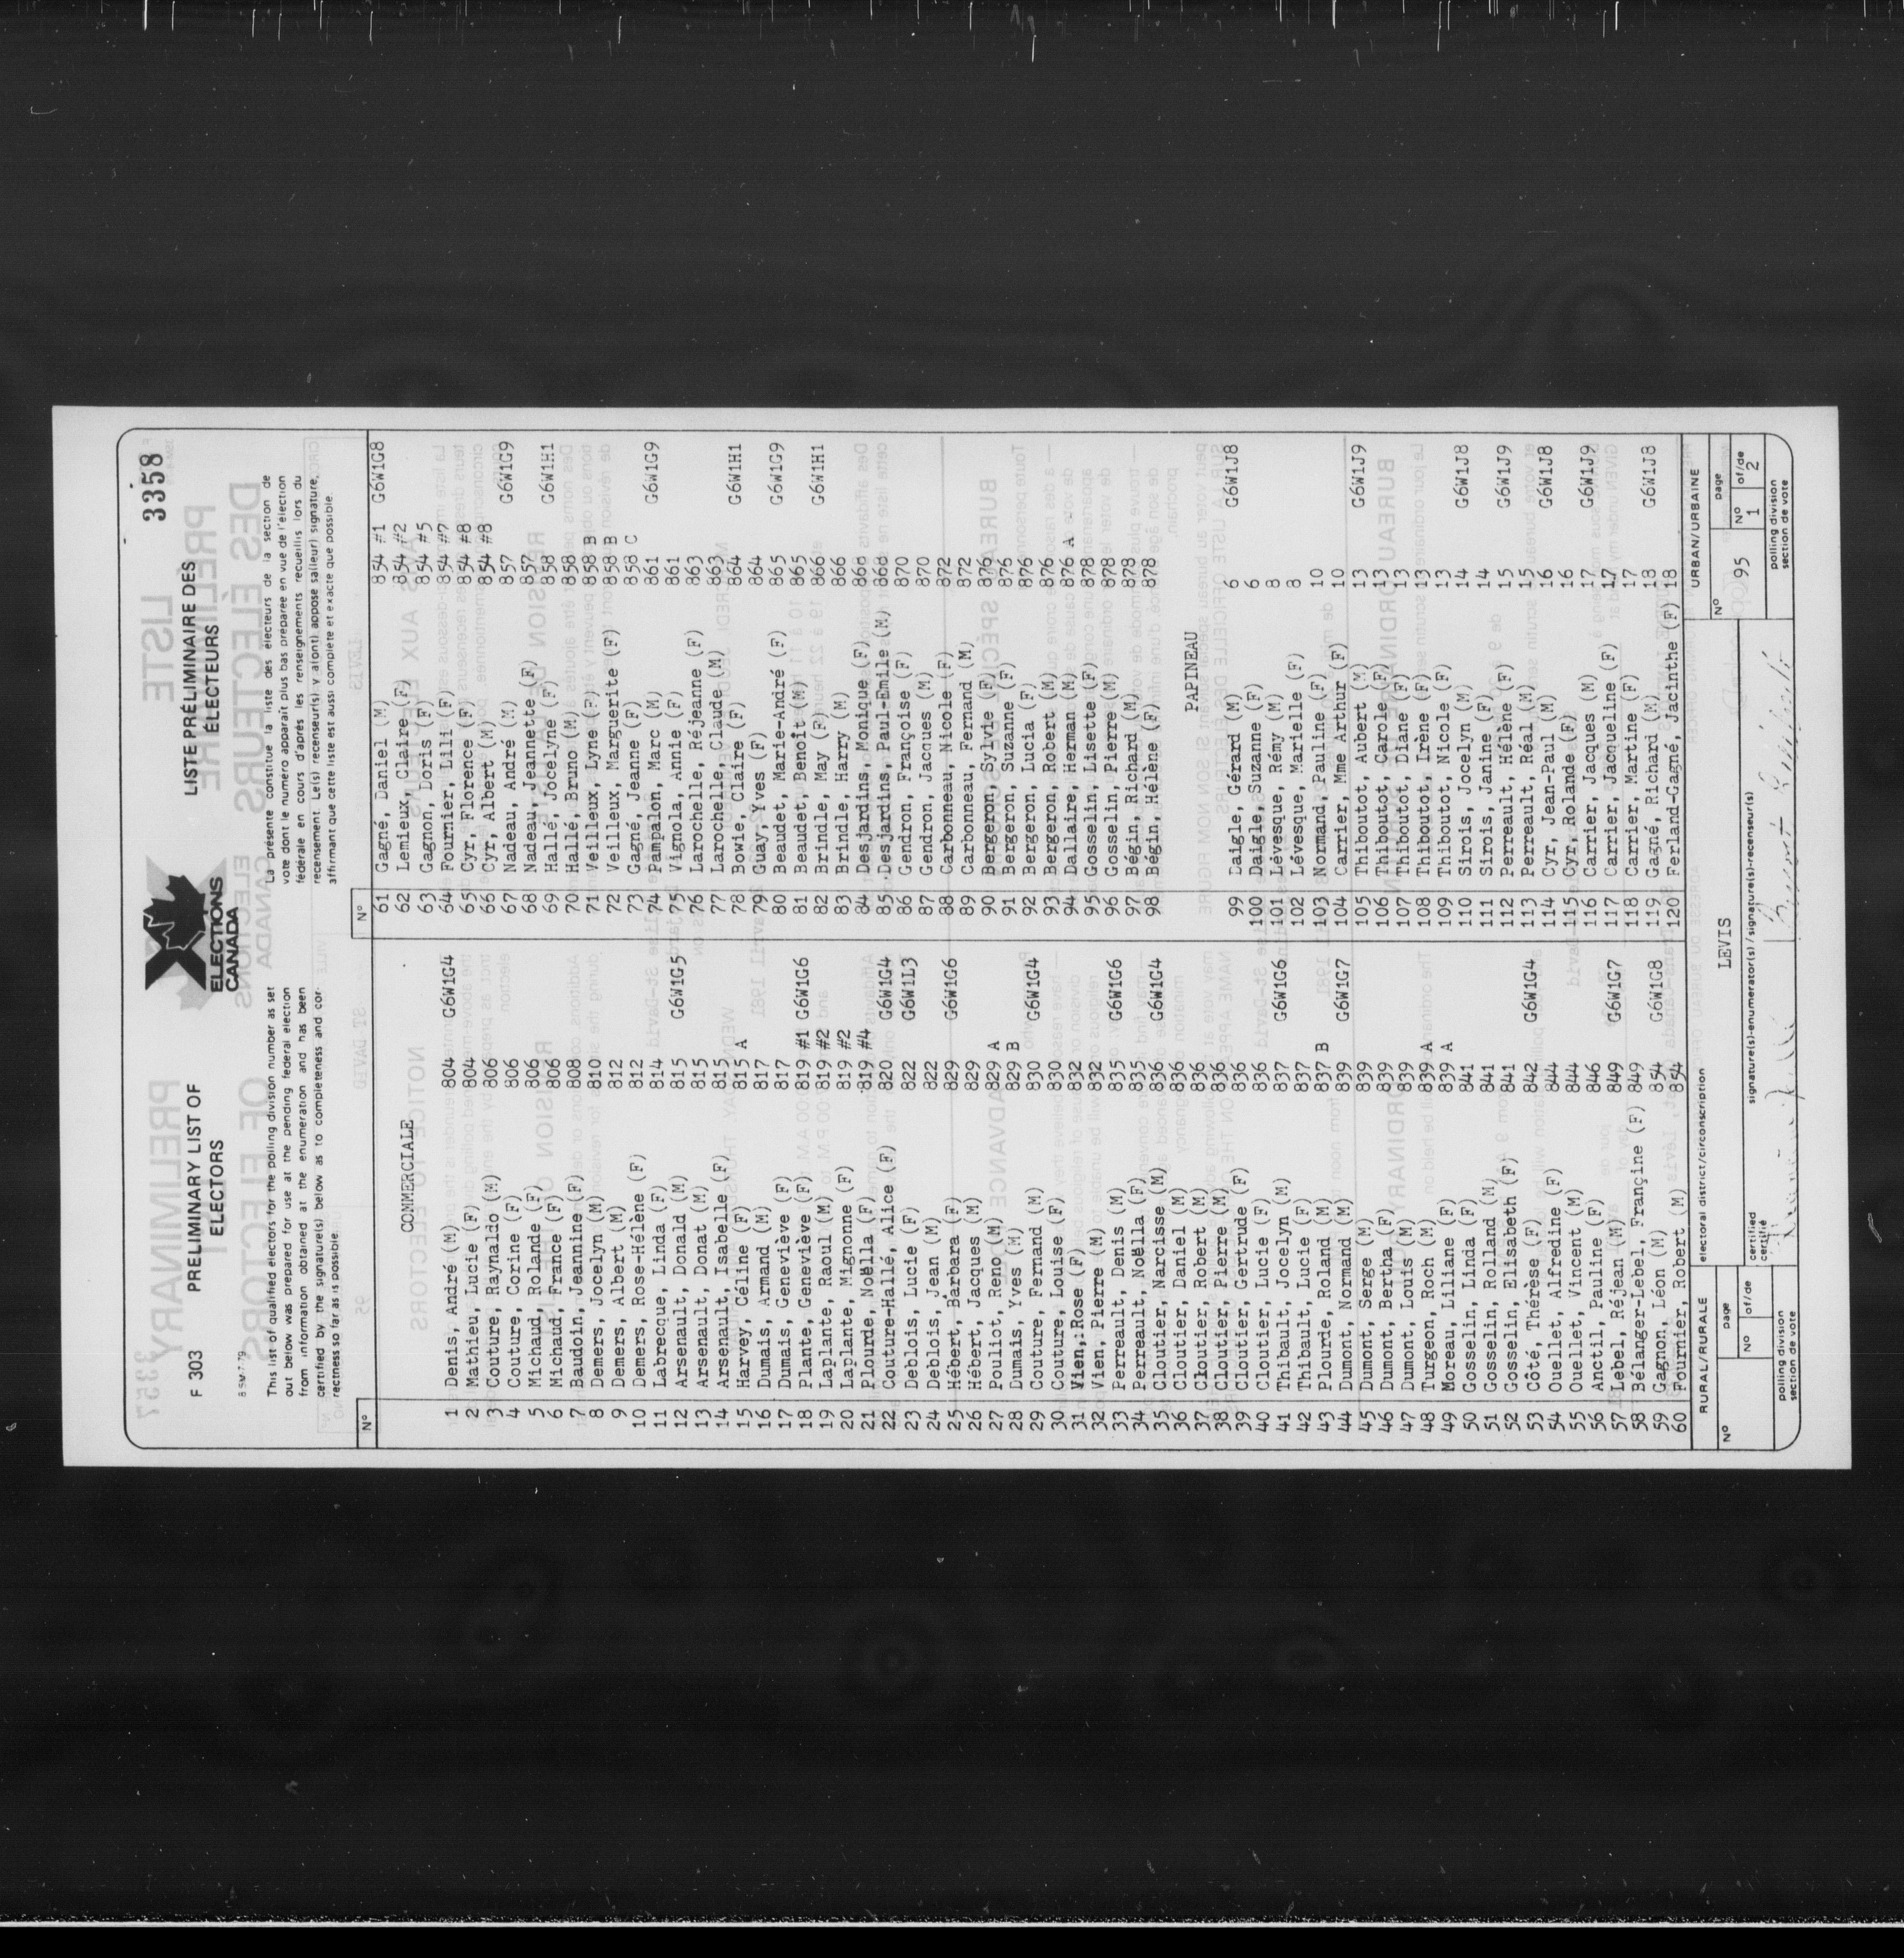 3358
F 303 PRELIMINARY LIST OF ELECTORS
ELECTIONS CANADA
LISTE PRÉLIMINAIRE DES ÉLECTEURS
This list of qualified electors for the polling division number as set
out below was prepared for use at the pending federal election
from information obtained at the enumeration and has been
certified by the signature(s) below as to completeness and cor-
rectness so far as is possible.
La présente constitue la liste des électeurs de la section de
vote dont le numéro apparaît plus bas préparée en vue de l'élection
fédérale en cours d'après les renseignements recueillis lors du
recensement. Le(s) recenseur(s) y a(ont) apposé sa(leur) signature,
affirmant que cette liste est aussi complète et exacte que possible.
Nº
COMMERCIALE
1 Denis, André (M) 804 G6W1G4
2 Mathieu, Lucie (F) 804
3 Couture, Raynaldo (M) 806
4 Couture, Corine (F) 806
5 Michaud, Rolande (F) 806
6 Michaud, France (F) 806
7 Baudoin, Jeannine (F) 808
8 Demers, Jocelyn (M) 810
9 Demers, Albert (M) 812
10 Demers, Rose-Hélène (F) 812
11 Labrecque, Linda (F) 814
12 Arsenault, Donald (M) 815 G6W1G5
13 Arsenault, Donat (M) 815
14 Arsenault, Isabelle (F) 815
15 Harvey, Céline (F) 815 A
16 Dumais, Armand (M) 817
17 Dumais, Geneviève (F) 817
18 Plante, Geneviève (F) 819 #1 G6W1G6
19 Laplante, Raoul (M) 819 #2
20 Laplante, Mignonne (F) 819 #2
21 Plourde, Noëlla (F) 819 #4
22 Couture-Hallé, Alice (F) 820 G6W1G4
23 Deblois, Lucie (F) 822 G6W1L3
24 Deblois, Jean (M) 822
25 Hébert, Barbara (F) 829 G6W1G6
26 Hébert, Jacques (M) 829
27 Pouliot, Reno (M) 829 A
28 Dumais, Yves (M) 829 B
29 Couture, Fernand (M) 830 G6W1G4
30 Couture, Louise (F) 830
31 Vien, Rose (F) 832
32 Vien, Pierre (M) 832
33 Perreault, Denis (M) 835 G6W1G6
34 Perreault, Noëlla (F) 835
35 Cloutier, Narcisse (M) 836 G6W1G4
36 Cloutier, Daniel (M) 836
37 Cloutier, Robert (M) 836
38 Cloutier, Pierre (M) 836
39 Cloutier, Gertrude (F) 836
40 Cloutier, Lucie (F) 836
41 Thibault, Jocelyn (M) 837 G6W1G6
42 Thibault, Lucie (F) 837
43 Plourde, Roland (M) 837 B
44 Dumont, Normand (M) 839 G6W1G7
45 Dumont, Serge (M) 839
46 Dumont, Bertha (F) 839
47 Dumont, Louis (M) 839
48 Turgeon, Roch (M) 839 A
49 Moreau, Liliane (F) 839 A
50 Gosselin, Linda (F) 841
51 Gosselin, Rolland (M) 841
52 Gosselin, Elisabeth (F) 841
53 Côté, Thérèse (F) 842 G6W1G4
54 Ouellet, Alfredine (F) 844
55 Ouellet, Vincent (M) 844
56 Anctil, Pauline (F) 846
57 Lebel, Réjean (M) 849 G6W1G7
58 Bélanger-Lebel, Françine (F) 849
59 Gagnon, Léon (M) 854 G6W1G8
60 Fournier, Robert (M) 854
Nº
61 Gagné, Daniel (M) 854 #1 G6W1G8
62 Lemieux, Claire (F) 854 #2
63 Gagnon, Doris (F) 854 #5
64 Fournier, Lili (F) 854 #7
65 Cyr, Florence (F) 854 #8
66 Cyr, Albert (M) 854 #8
67 Nadeau, André (M) 857 G6W1G9
68 Nadeau, Jeannette (F) 857
69 Hallé, Jocelyne (F) 858 G6W1H1
70 Hallé, Bruno (M) 858
71 Veilleux, Lyne (F) 858 B
72 Veilleux, Marguerite (F) 858 B
73 Gagné, Jeanne (F) 858 C
74 Pampalon, Marc (M) 861 G6W1G9
75 Vignola, Annie (F) 861
76 Larochelle, Réjeanne (F) 863
77 Larochelle, Claude (M) 863
78 Bowie, Claire (F) 864 G6W1H1
79 Guay, Yves (F) 864
80 Beaudet, Marie-André (F) 865 G6W1G9
81 Beaudet, Benoît (M) 865
82 Brindle, May (F) 866 G6W1H1
83 Brindle, Harry (M) 866
84 Desjardins, Monique (F) 868
85 Desjardins, Paul-Emile (M) 868
86 Gendron, Françoise (F) 870
87 Gendron, Jacques (M) 870
88 Carbonneau, Nicole (F) 872
89 Carbonneau, Fernand (M) 872
90 Bergeron, Sylvie (F) 876
91 Bergeron, Suzanne (F) 876
92 Bergeron, Lucia (F) 876
93 Bergeron, Robert (M) 876
94 Dallaire, Herman (M) 876 A
95 Gosselin, Lisette (F) 878
96 Gosselin, Pierre (M) 878
97 Bégin, Richard (M) 878
98 Bégin, Hélène (F) 878
PAPINEAU
99 Daigle, Gérard (M) 6 G6W1J8
100 Daigle, Suzanne (F) 6
101 Lévesque, Rémy (M) 8
102 Lévesque, Marielle (F) 8
103 Normand, Pauline (F) 10
104 Carrier, Mme Arthur (F) 10
105 Thiboutot, Aubert (M) 13 G6W1J9
106 Thiboutot, Carole (F) 13
107 Thiboutot, Diane (F) 13
108 Thiboutot, Irène (F) 13
109 Thiboutot, Nicole (F) 13
110 Sirois, Jocelyn (M) 14 G6W1J8
111 Sirois, Janine (F) 14
112 Perreault, Hélène (F) 15 G6W1J9
113 Perreault, Réal (M) 15
114 Cyr, Jean-Paul (M) 16 G6W1J8
115 Cyr, Rolande (F) 16
116 Carrier, Jacques (M) 17 G6W1J9
117 Carrier, Jacqueline (F) 17
118 Carrier, Martine (F) 17
119 Gagné, Richard (M) 18 G6W1J8
120 Ferland-Gagné, Jacinthe (F) 18
RURAL/RURALE
Nº
page
Nº of/de
polling division
section de vote
electoral district/circonscription
LEVIS
certified
certifié
signature(s)-enumerator(s)/signature(s)-recenseur(s)
URBAN/URBAINE
Nº 95
page
Nº 1 of/de 2
polling division
section de vote